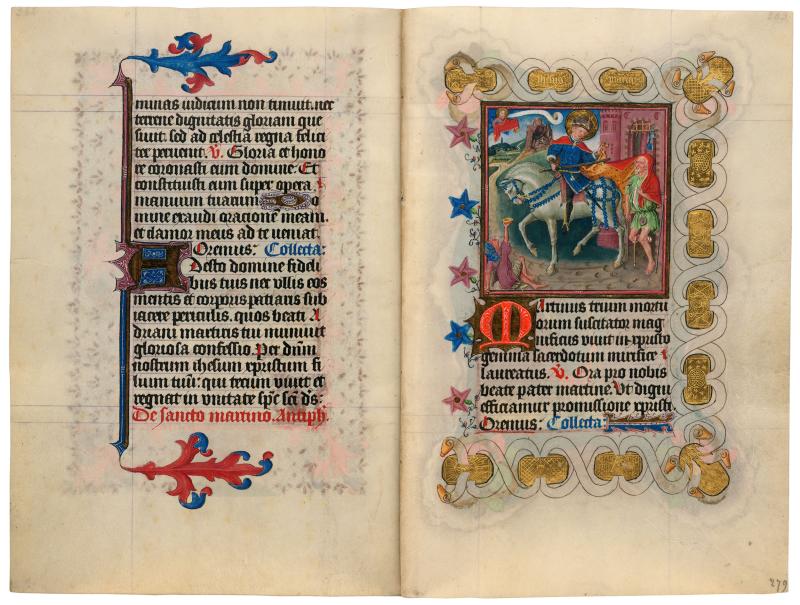 minas iudicium non timuit. nec
terrene dignitatis gloriam que
siuit. sed ad celestia regna felici
ter peruenit. V. Gloria et hono
re coronasti eum domine. Et
constituisti eum super opera
manuum tuarum o
mine exaudi orationem meam.
et clamor meus ad te ueniat.
Oremus: Collecta:
Adesto domine fideli
bus tuis nec vllis eos
mentis et corporis patiaris sub
iacere periculis. quos beati A
driani martiris tui muniuit
gloriosa confessio. Per dnm
nostrum ihesum xpristum fi
lium tuu: qui tecum viuit et
regnat in vnitate sps sci ds:
De sancto martino. Antiph.
Ihesus Maria
Martinus trium mortu
orum suscitator mag
nificus viuit in xpristo
gemma sacerdotum mirifice
laureatus. V. Ora pro nobis
beate pater martine. Vt digni
efficiamur promissione xpristi.
Oremus: Collecta:
279